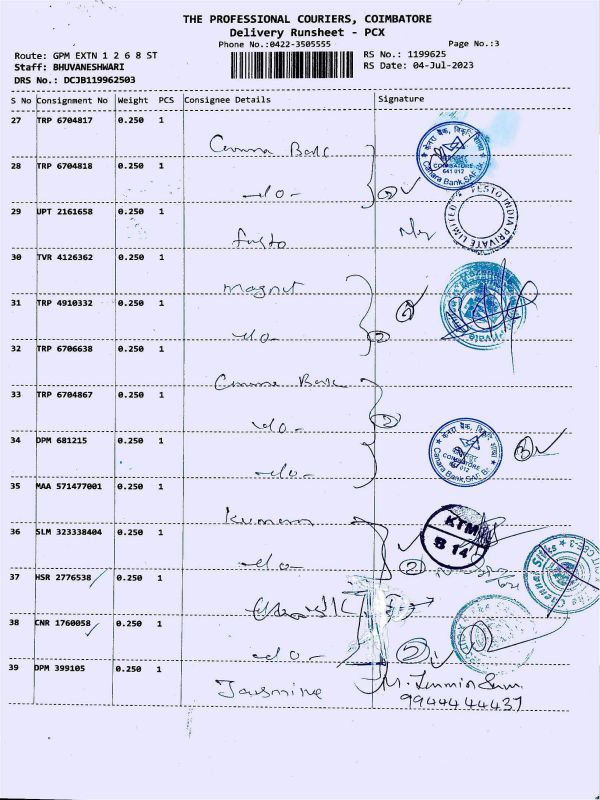 THE PROFESSIONAL COURIERS, COIMBATORE
Delivery Runsheet - PCX
Phone No.:0422-3505555
Page No.:3
Route: GPM EXTN 1 2 6 8 ST
RS No.: 1199625
Staff: BHUVANESHWARI
RS Date: 04-Jul-2023
DRS No.: DCJB119962503
S No Consignment No Weight PCS Consignee Details Signature
27 TRP 6704817 0.250 1
Canara Bank
28 TRP 6704818 0.250 1
-do-
29 UPT 2161658 0.250 1
festo
30 TVR 4126362 0.250 1
magnut
31 TRP 4910332 0.250 1
-do-
32 TRP 6706638 0.250 1
Canara Bank
33 TRP 6704867 0.250 1
-do-
34 DPM 681215 0.250 1
-do-
35 MAA 571477001 0.250 1
36 SLM 323338404 0.250 1
-do-
37 HSR 2776538 0.250 1
38 CNR 1760058 0.250 1
-do-
39 DPM 399105 0.250 1
Jausmine
9944444437
केनरा बैंक
COIMBATORE
641 012
Canara Bank, SAF Br.
FESTO INDIA PRIVATE LIMITED
केनरा बैंक
COIMBATORE
Canara Bank, SAF Br.
KTM
B 14
The Chennai Silks